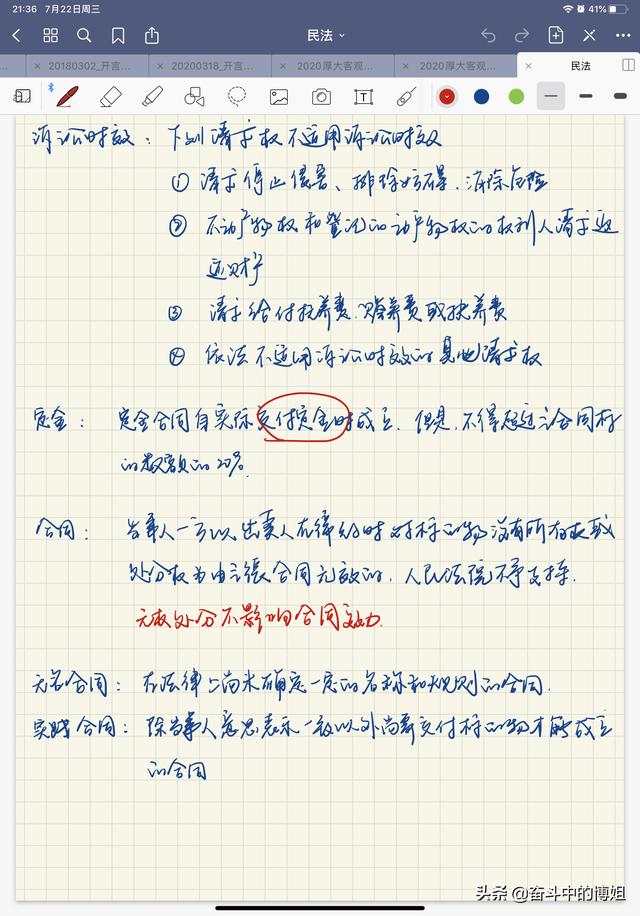 21:36 7月22日周三
41%
民法
20180302_开言...
20200318_开言...
2020厚大客观...
2020厚大客观...
民法
诉讼时效：下列请求权不适用诉讼时效
① 请求停止侵害、排除妨碍、消除危险
② 不动产物权和登记的动产物权的权利人请求返
还财产
③ 请求给付抚养费、赡养费或扶养费
④ 依法不适用诉讼时效的其他请求权
定金：定金合同自实际交付定金时成立，但是，不得超过主合同标
的数额的20%.
合同：当事人一方以出卖人在缔约时对标的物没有所有权或
处分权为由主张合同无效的，人民法院不予支持.
无权处分不影响合同效力.
无名合同：在法律上尚未确定一定的名称和规则的合同.
实践合同：除当事人意思表示一致以外尚需交付标的物才能成立
的合同
头条 @奋斗中的博姐